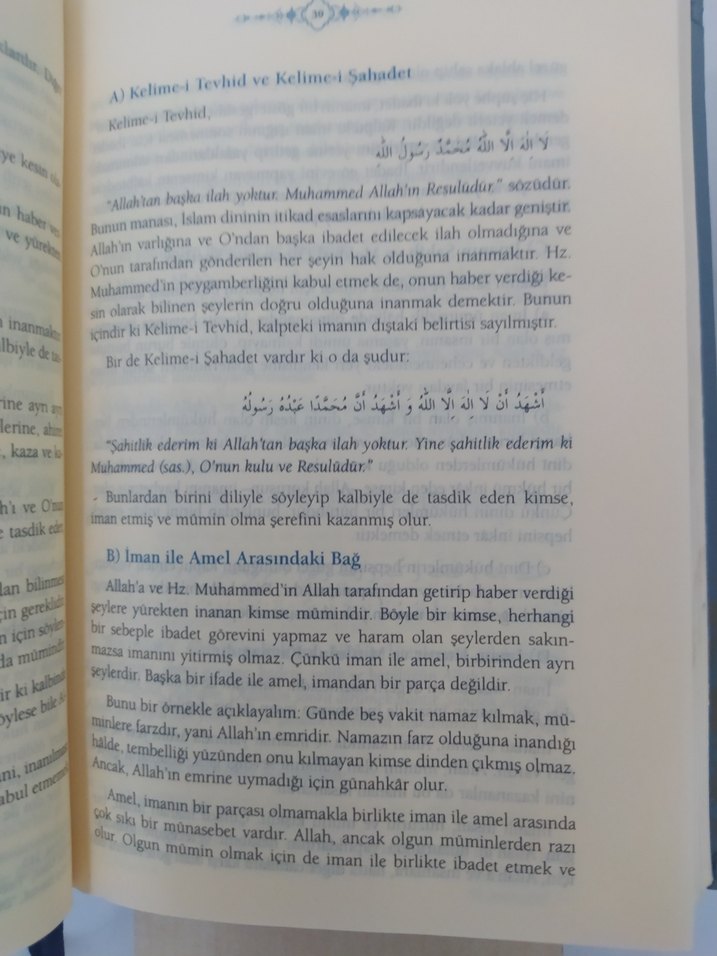 ye kesin
haber
ve yürekten
inanmaktır
lbiyle de
rine ayrı ayrı
lerine,
kaza ve
h'ı ve O'nun
e tasdik eden
lan
çin gereklidir
n için
da mümindir
ir ki
öylese bile
A) Kelime-i Tevhid ve Kelime-i Şahadet
Kelime-i Tevhid,
لَا اِلٰهَ اِلَّا اللّٰهُ مُحَمَّدٌ رَسُولُ اللّٰهِ
“Allah’tan başka ilah yoktur. Muhammed Allah’ın Resulüdür.” sözüdür.
Bunun manası, İslam dininin itikad esaslarını kapsayacak kadar geniştir.
Allah’ın varlığına ve O’ndan başka ibadet edilecek ilah olmadığına ve
O’nun tarafından gönderilen her şeyin hak olduğuna inanmaktır. Hz.
Muhammed’in peygamberliğini kabul etmek de, onun haber verdiği ke-
sin olarak bilinen şeylerin doğru olduğuna inanmak demektir. Bunun
içindir ki Kelime-i Tevhid, kalpteki imanın dıştaki belirtisi sayılmıştır.
Bir de Kelime-i Şahadet vardır ki o da şudur:
اَشْهَدُ اَنْ لَا اِلٰهَ اِلَّا اللّٰهُ وَ اَشْهَدُ اَنَّ مُحَمَّدًا عَبْدُهُ وَرَسُولُهُ
“Şahitlik ederim ki Allah’tan başka ilah yoktur. Yine şahitlik ederim ki
Muhammed (sas.), O’nun kulu ve Resulüdür.”
- Bunlardan birini diliyle söyleyip kalbiyle de tasdik eden kimse,
iman etmiş ve mümin olma şerefini kazanmış olur.
B) İman ile Amel Arasındaki Bağ
Allah’a ve Hz. Muhammed’in Allah tarafından getirip haber verdiği
şeylere yürekten inanan kimse mümindir. Böyle bir kimse, herhangi
bir sebeple ibadet görevini yapmaz ve haram olan şeylerden sakın-
mazsa imanını yitirmiş olmaz. Çünkü iman ile amel, birbirinden ayrı
şeylerdir. Başka bir ifade ile amel, imandan bir parça değildir.
Bunu bir örnekle açıklayalım: Günde beş vakit namaz kılmak, mü-
minlere farzdır, yani Allah’ın emridir. Namazın farz olduğuna inandığı
hâlde, tembelliği yüzünden onu kılmayan kimse dinden çıkmış olmaz.
Ancak, Allah’ın emrine uymadığı için günahkâr olur.
Amel, imanın bir parçası olmamakla birlikte iman ile amel arasında
çok sıkı bir münasebet vardır. Allah, ancak olgun müminlerden razı
olur. Olgun mümin olmak için de iman ile birlikte ibadet etmek ve